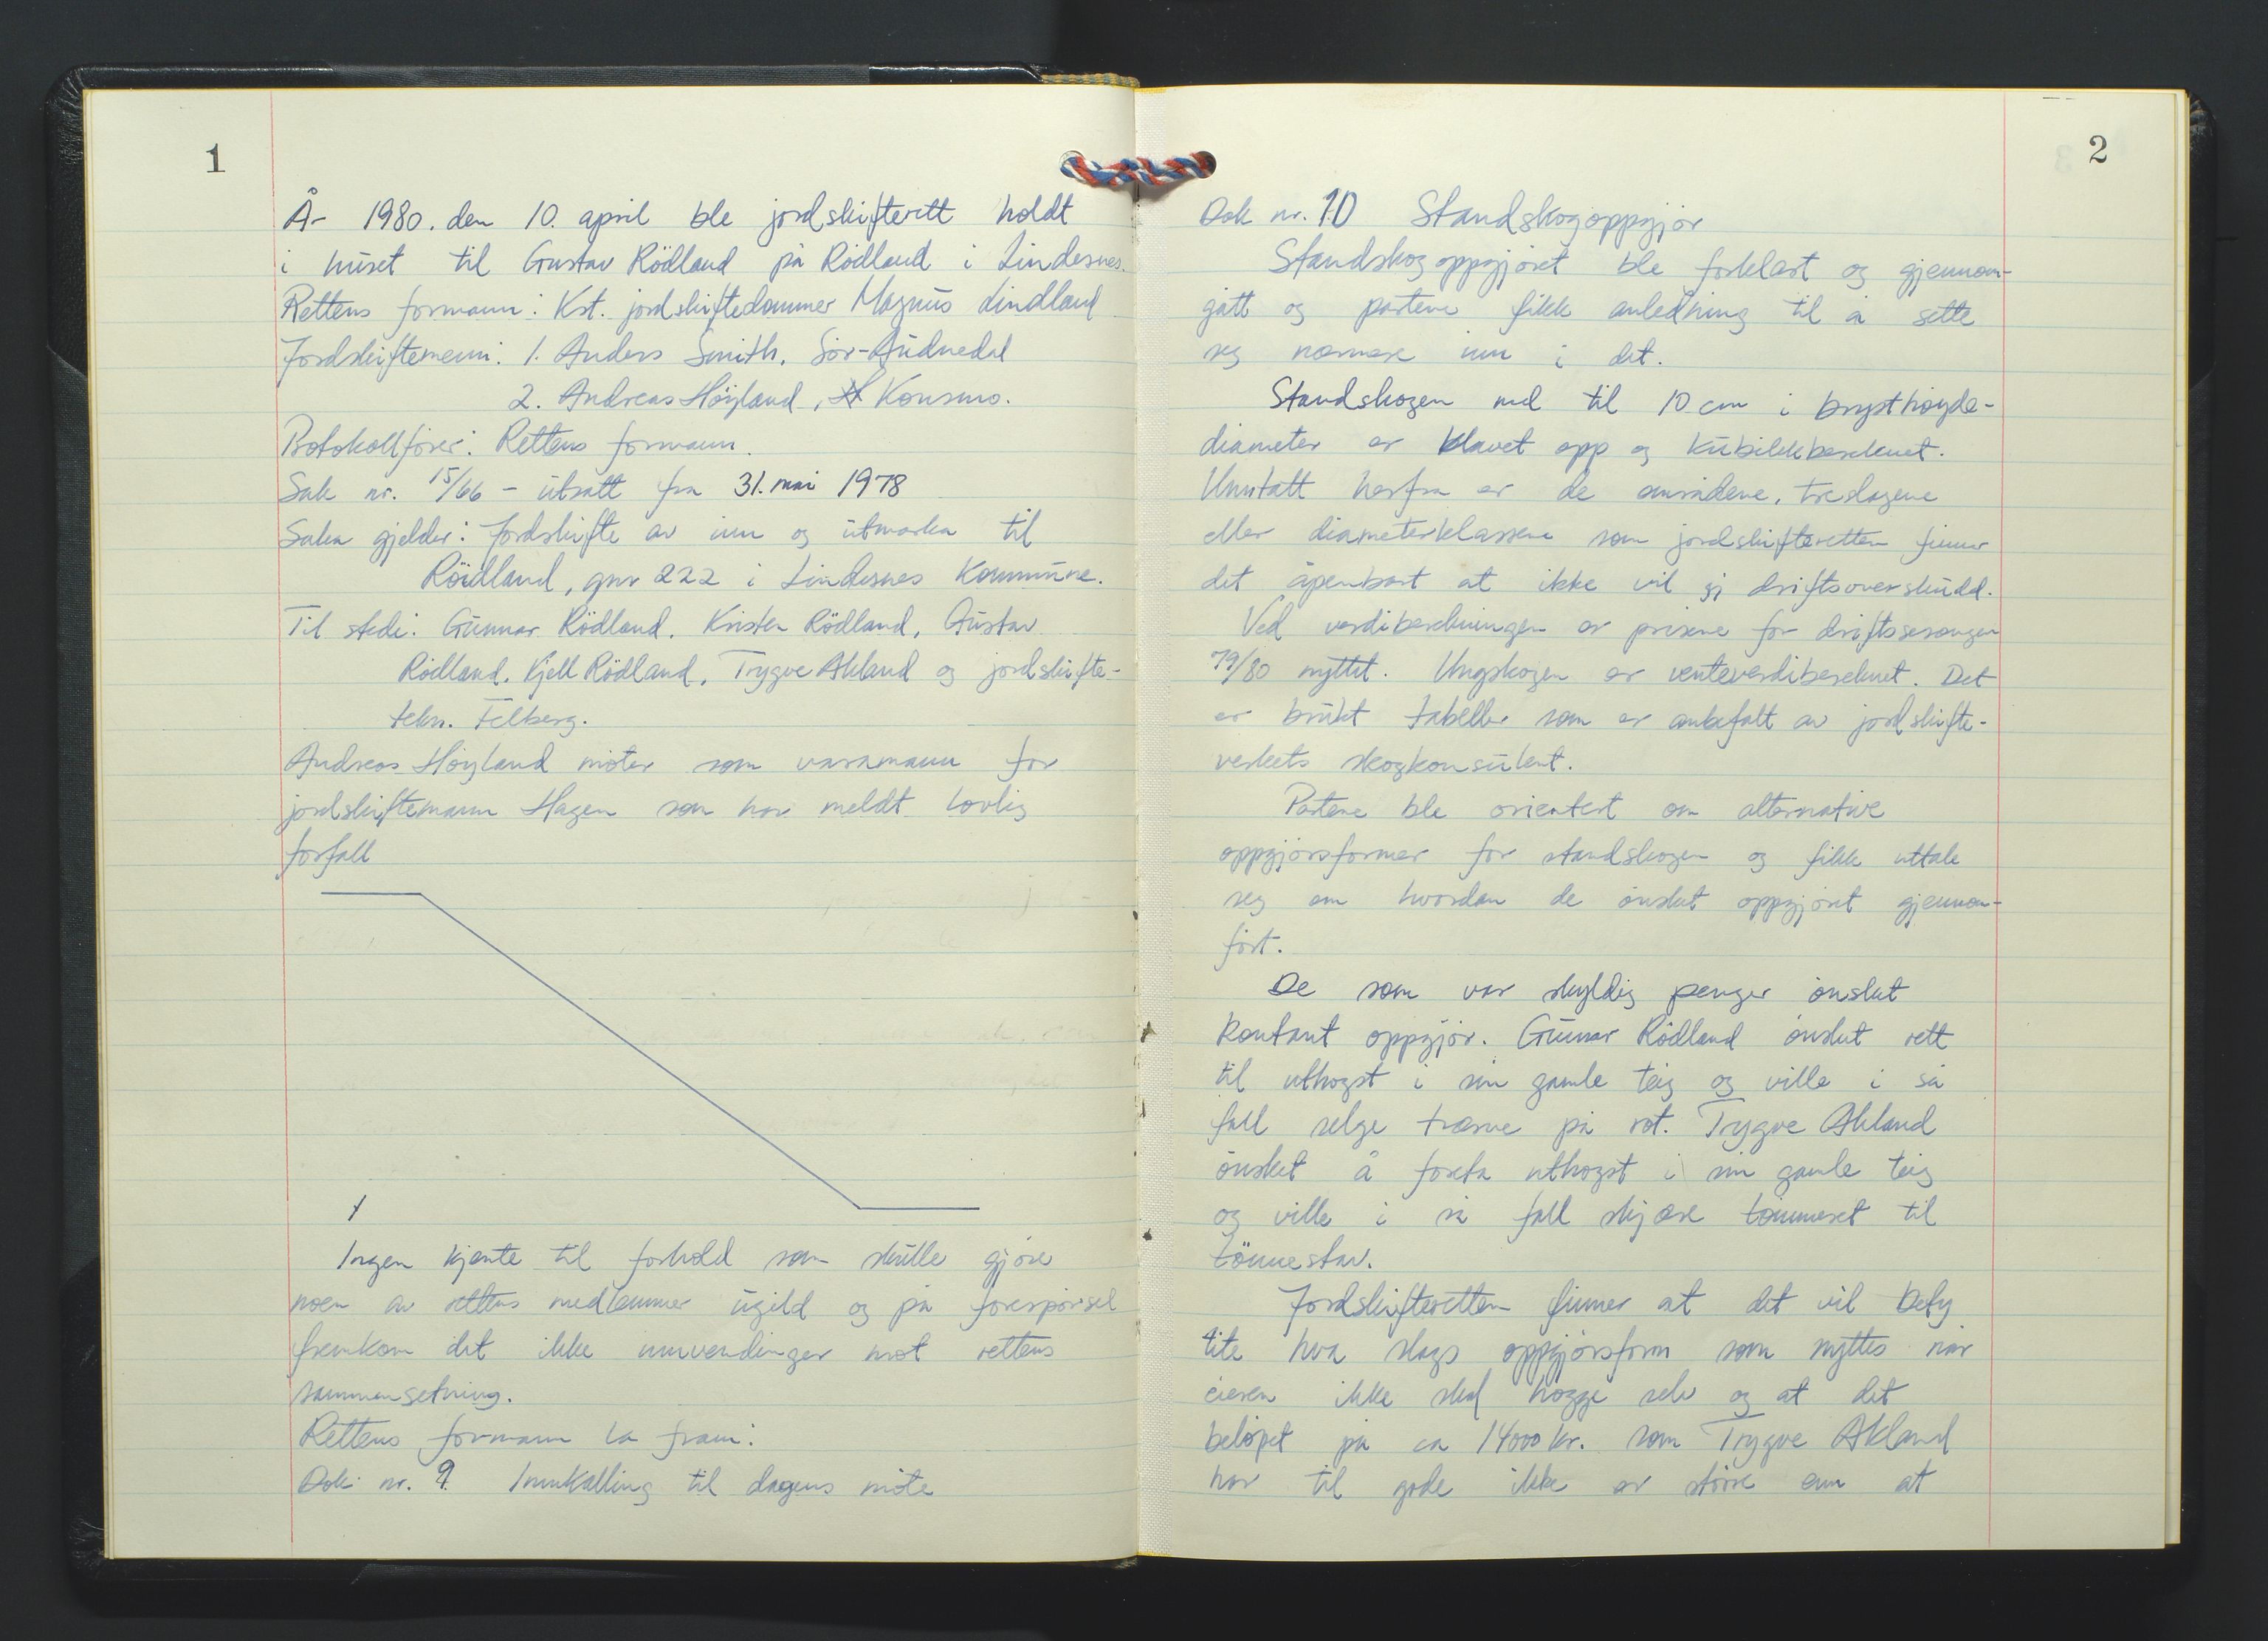 1
År 1980. den 10. april ble jordskifterett holdt
i huset til Gustav Rödland på Rödland i Lindesnes.
Rettens formann: Kst. jordskiftedommer Magnus Lindland
Jordskiftemenn: 1. Anders Smith, Sör-Audnedal
2. Andreas Höyland, Konsmo.
Protokollförer: Rettens formann.
Sak nr. 15/66 - utsatt fra 31. mai 1978
Saka gjelder: Jordskifte av inn og utmarka til
Rödland, gnr 222 i Lindesnes Kommune.
Til stede: Gunnar Rödland, Kristen Rödland, Gustav
Rödland. Kjell Rödland, Trygve Akland og jordskifte-
tekn. Felberg.
Andreas Höyland möter som varamann for
jordskiftemann Hagen som har meldt lovlig
forfall
Ingen kjente til forhold som skulle gjöre
noen av rettens medlemmer ugild og på forespörsel
fremkom det ikke innvendinger mot rettens
sammensetning.
Rettens formann la fram:
Dok nr. 9. Innkalling til dagens möte
2
Dok nr. 10 Standskogoppgjör
Standskogoppgjöret ble forklart og gjennom-
gått og partene fikk anledning til å sette
seg nærmere inn i det.
Standskogen ned til 10 cm i brysthöyde-
diameter er klavet opp og kubikkbereknet.
Unntatt herfra er de områdene, treslagene
eller diameterklassene som jordskifteretten finner
det åpenbart at ikke vil gi driftsoverskudd.
Ved verdiberekningen er prisene for driftssesongen
79/80 nyttet. Ungskogen er venteverdibereknet. Det
er brukt tabeller som er anbefalt av jordskifte-
verkets skogkonsulent.
Partene ble orientert om alternative
oppgjörsformer for standskogen og fikk uttale
seg om hvordan de önsket oppgjöret gjennom-
fört.
De som var skyldig penger önsket
kontant oppgjör. Gunnar Rödland önsket rett
til uthogst i sin gamle teig og ville i så
fall selge trærne på rot. Trygve Akland
önsket å foreta uthogst i sin gamle teig
og ville i så fall skjære tömmeret til
tönnestav.
Jordskifteretten finner at det vil bety
lite hva slags oppgjörsform som nyttes når
eieren ikke skal hogge selv og at det
belöpet på ca 14000 kr. som Trygve Akland
har til gode ikke er större enn at